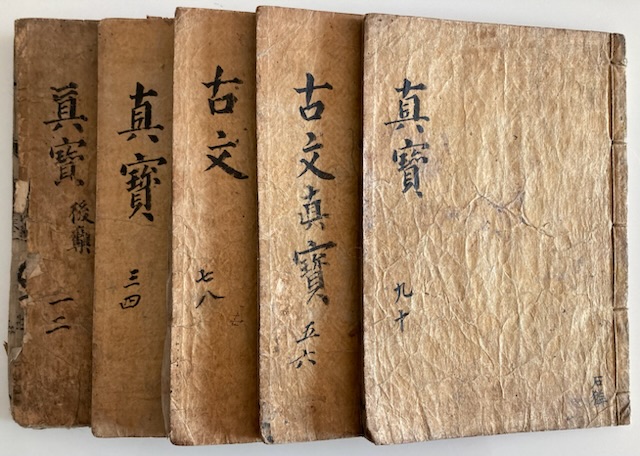 眞寶
後集
一二
真寶
三四
古文
七八
古文真寶
五六
真寶
九十